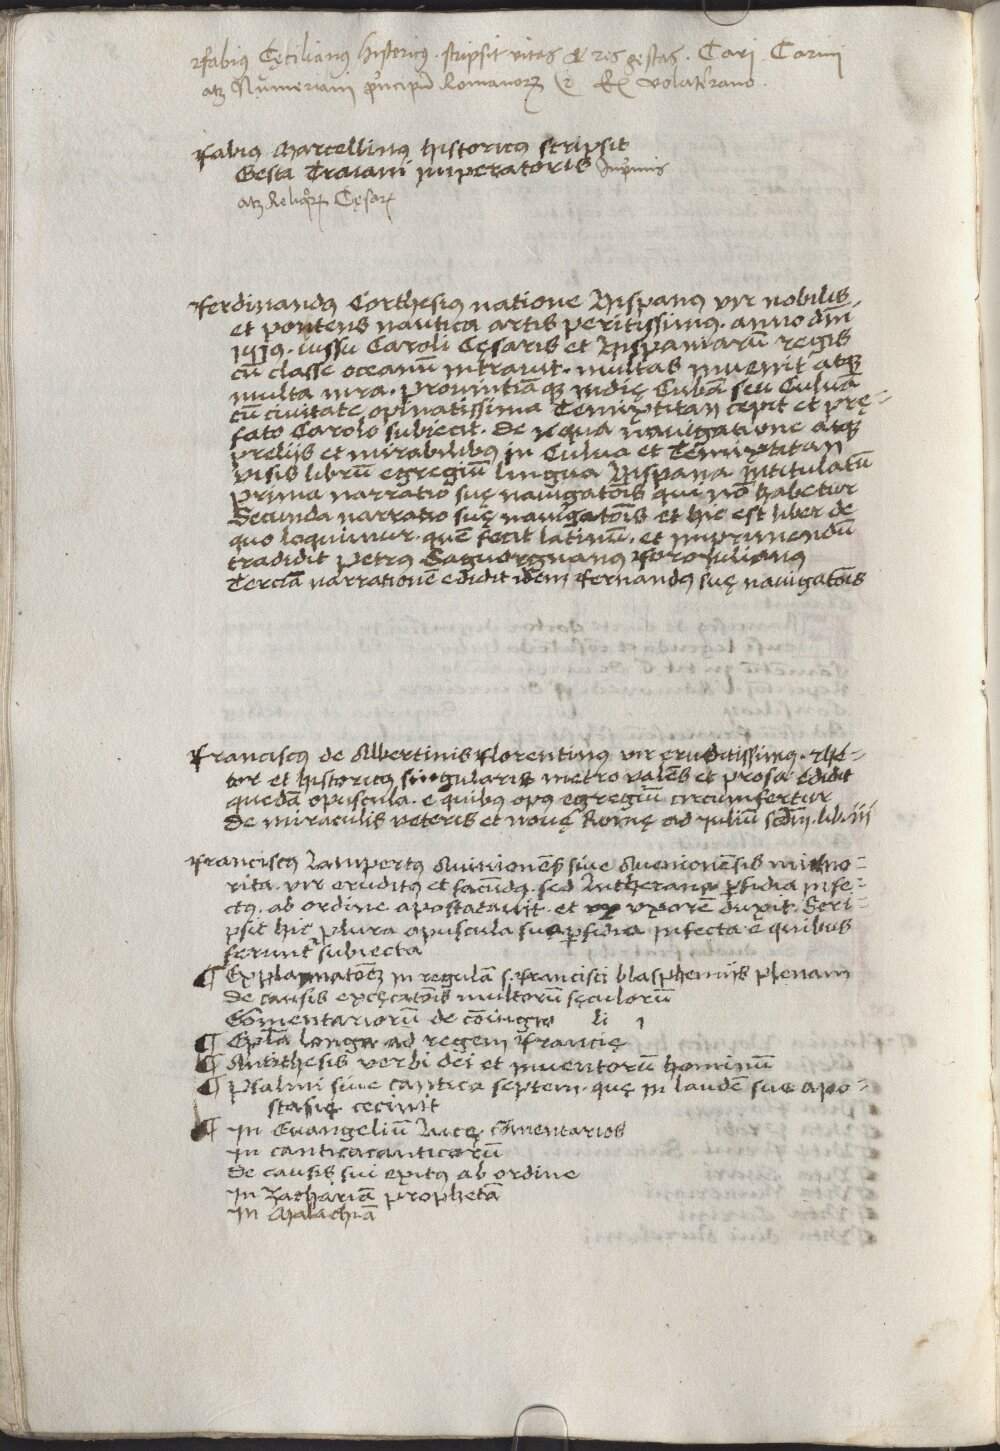 Fabiꝰ Cęcilianꝰ historicꝰ. scripsit vitas et res gestas. Cari. Carini
atqꝫ Numeriani principū Romanorꝝ ex Ra. Volaterano.
Fabiꝰ Marcellinꝰ historicꝰ scripsit
Gesta Traiani imperatoris inprimis
atqꝫ Reliqꝝ Cęsarꝝ
Ferdinandꝰ Corthesiꝰ natione Hispanꝰ vir nobilis
et potens nautica artis peritissimꝰ. anno dm̄
1519. iussu Caroli Cęsaris et Hispaniarū regis
cū classe oceanū intrauit. multas inuenit atqꝫ
multa mira. prouintiā qꝫ indię Cubā seu Culuā
cū ciuitate opinatissima Temixtitan cepit et prę-
fato Carolo subiecit. De qua nauigatione atqꝫ
preliis et mirabilibꝰ in Culua et Temixtitan
visis librū egregiū lingua Hispana intitulatū
Prima narratio suę nauigatōis qui nō habetur
Secunda narratio suę nauigatōis et hic est liber de
quo loquimur. quē fecit latinū. et imprimendū
tradidit Petrꝰ Saguorgnanꝰ Foroiulianꝰ
Terciā narrationē edidit idem Fernandꝰ suę nauigatōis
Franciscꝰ de Albertinis Florentinꝰ vir eruditissimꝰ. rhe-
tor et historicꝰ singularis metro valēs et prosa edidit
quedā opuscula. e quibꝰ opꝰ egregiū circumfertur
De miraculis veteris et nouę Romę ad Iuliū scdm. lib. iii
Franciscꝰ Lampertꝰ Auinionēs siue Auenionēsis mino-
rita. vir eruditꝰ et facūdꝰ. sed Lutherana perfidia infe-
ctꝰ. ab ordine apostatauit. et vxorē duxit. Scri-
psit hic plura opuscula sua perfidia infecta e quibus
ferunt subiecta
¶ Explanatōeꝫ in regulā s. Francisci blasphemiis plenam
De causis excęcatōis multorū sęculorū
Commentariorū de cōiugio li 1
¶ Epl̄a longa ad regem Francię
¶ Antithesis verbi dei et inuentorū hominū
¶ Psalmi siue cantica septem. quę in laudē sue apo-
stasię cecinit
¶ In Euangeliū Lucę. cōmentarios
In canticacanticorū
De causis sui exitꝰ ab ordine
In Zachariā prophetā
In Malachiā